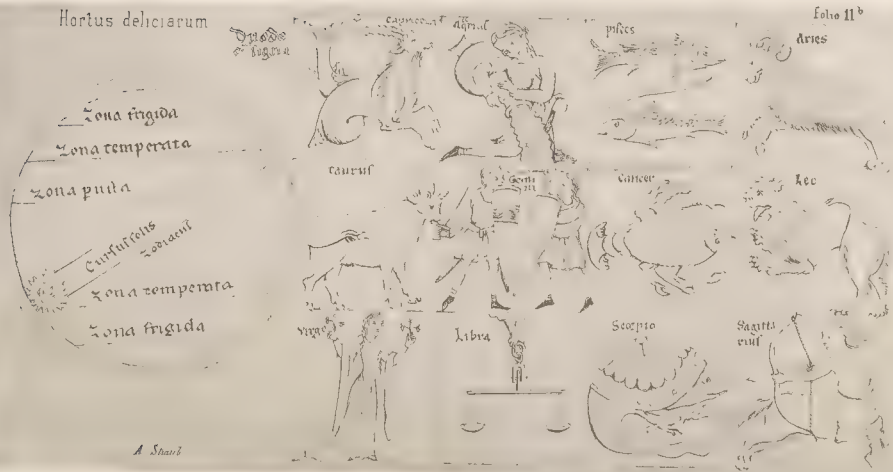 Hortus deliciarum
folio 11b
duode
signa
Zona frigida
Zona temperata
Zona pusta
Cursus solis
Zodiacus
Zona temperata
Zona frigida
capricorn
Aquarius
pisces
Aries
taurus
Gemi
ni
Cancer
Leo
Virgo
Libra
Scorpio
Sagitta
rius
A Straub